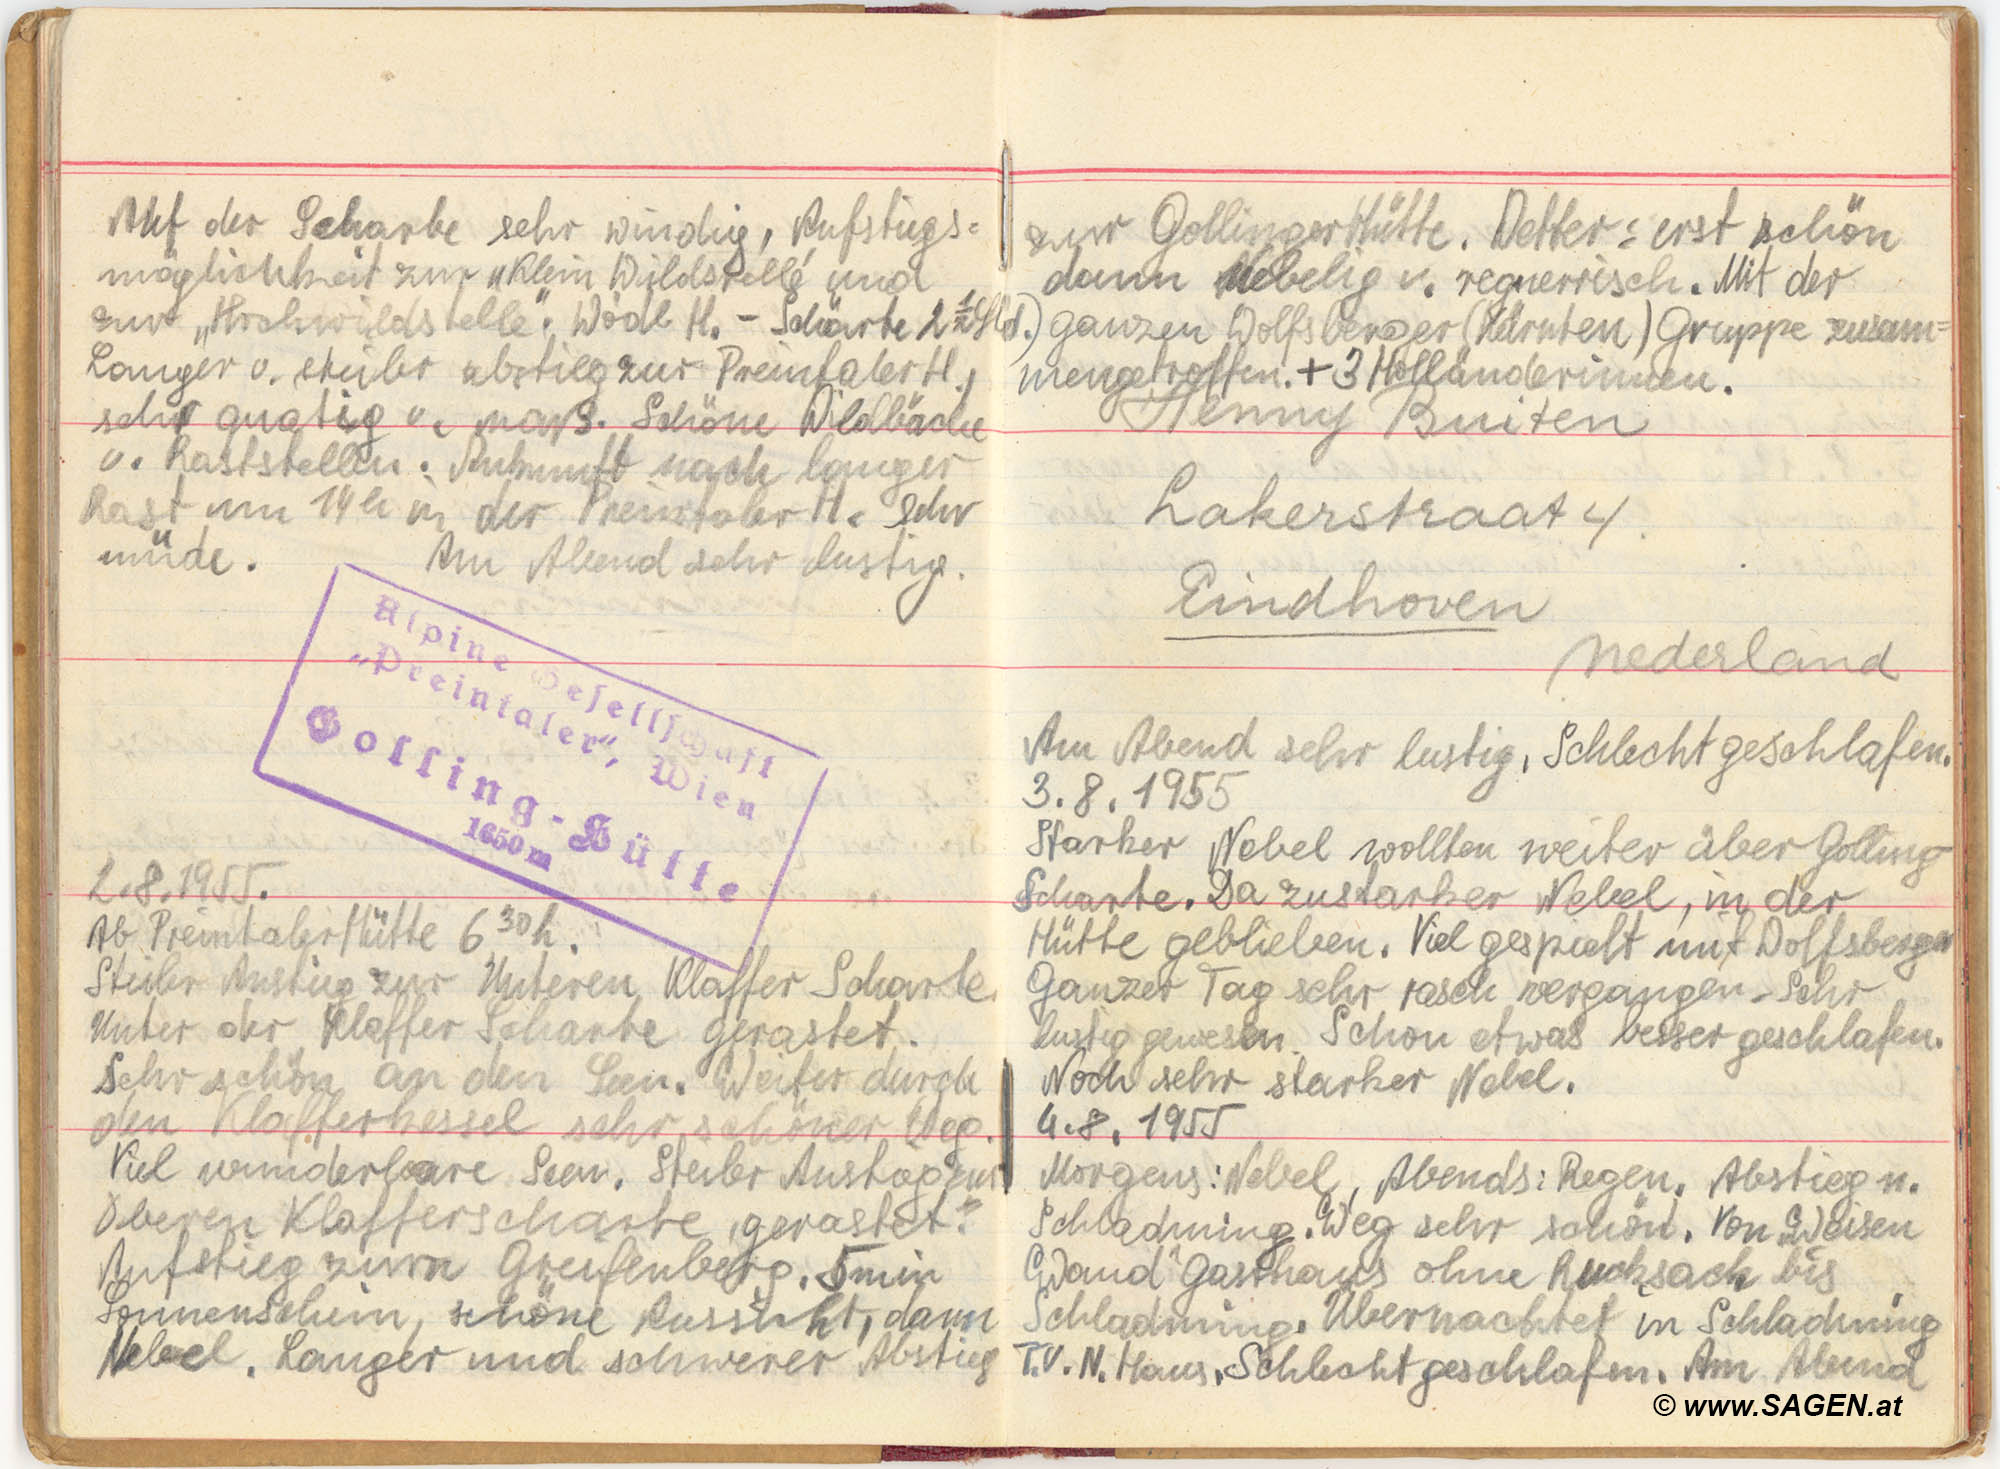 Auf der Scharte sehr windig, Aufstiegs=
möglichkeit zur „Klein Wildstelle" und
zur „Hochwildstelle". Wödl H. - Scharte 2 1/2 Std.)
Langer u. steiler Abstieg zur Preintaler H.,
sehr quatig u. naß. Schöne Wildbäche
u. Raststellen. Ankunft nach langer
Rast um 14 h in der Preintaler H. Sehr
müde. Am Abend sehr lustig.
Alpine Gesellschaft
„Preintaler", Wien
Golling-Hütte
1650 m
2.8.1955.
Ab Preintaler Hütte 6 30 h.
Steiler Anstieg zur Unteren Klaffer Scharte.
Unter der Klaffer Scharte gerastet.
Sehr schön an den Seen. Weiter durch
den Klafferkessel sehr schöner Weg.
Viel wunderbare Seen. Steiler Anstieg zur
Oberen Klafferscharte, gerastet.
Aufstieg zum Greifenberg. 5 min
Sonnenschein, schöne Aussicht, dann
Nebel. Langer und schwerer Abstieg
zur Gollinger Hütte. Wetter: erst schön
dann Nebelig u. regnerrisch. Mit der
ganzen Wolfsberger (Kärnten) Gruppe zusam=
mengetroffen. + 3 Holländerinnen.
Henny Buiten
Lakerstraat 4.
Eindhoven
Nederland
Am Abend sehr lustig, Schlecht geschlafen.
3.8.1955
Starker Nebel wollten weiter über Golling
Scharte. Da zu starker Nebel, in der
Hütte geblieben. Viel gespielt mit Wolfsberger
Ganzer Tag sehr rasch vergangen. Sehr
lustig gewesen. Schon etwas besser geschlafen.
Noch sehr starker Nebel.
4.8.1955
Morgens: Nebel, Abends: Regen. Abstieg n.
Schladming. Weg sehr schön. Von „Weisen
Wand" Gasthaus ohne Rucksack bis
Schladming. Übernachtet in Schladming
T.V.N. Haus, Schlecht geschlafen. Am Abend
© www.SAGEN.at